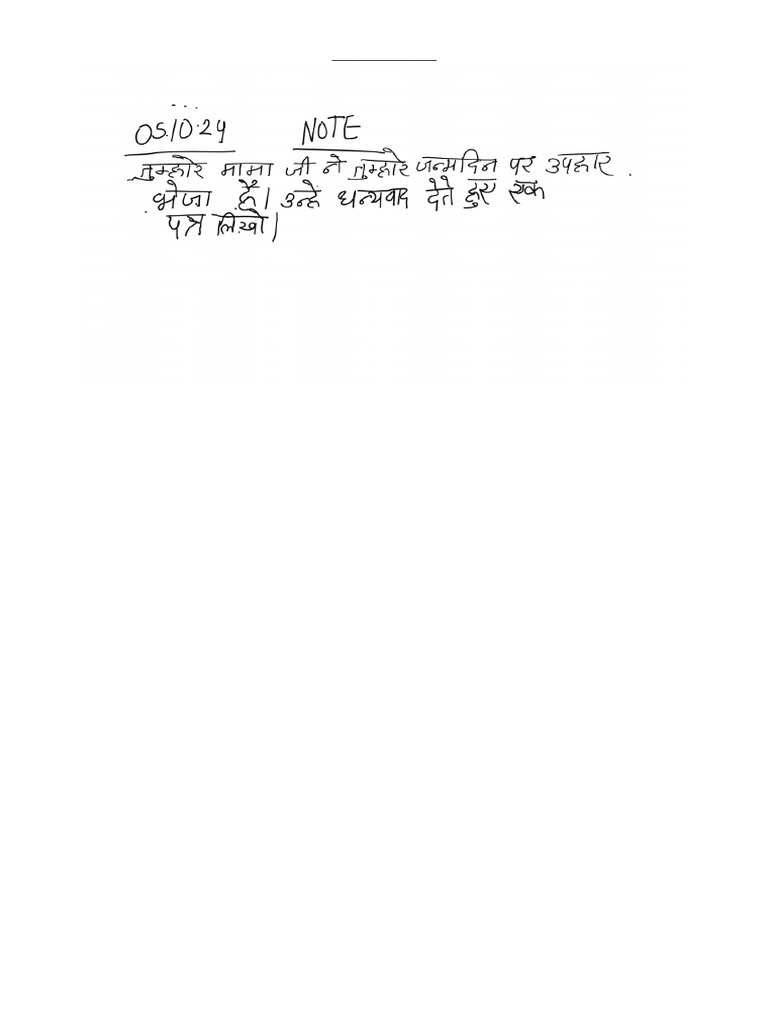 05.10.24 NOTE
तुम्हारे मामा जी ने तुम्हारे जन्मदिन पर उपहार
भेजा है। उन्हें धन्यवाद देते हुए एक
पत्र लिखो।